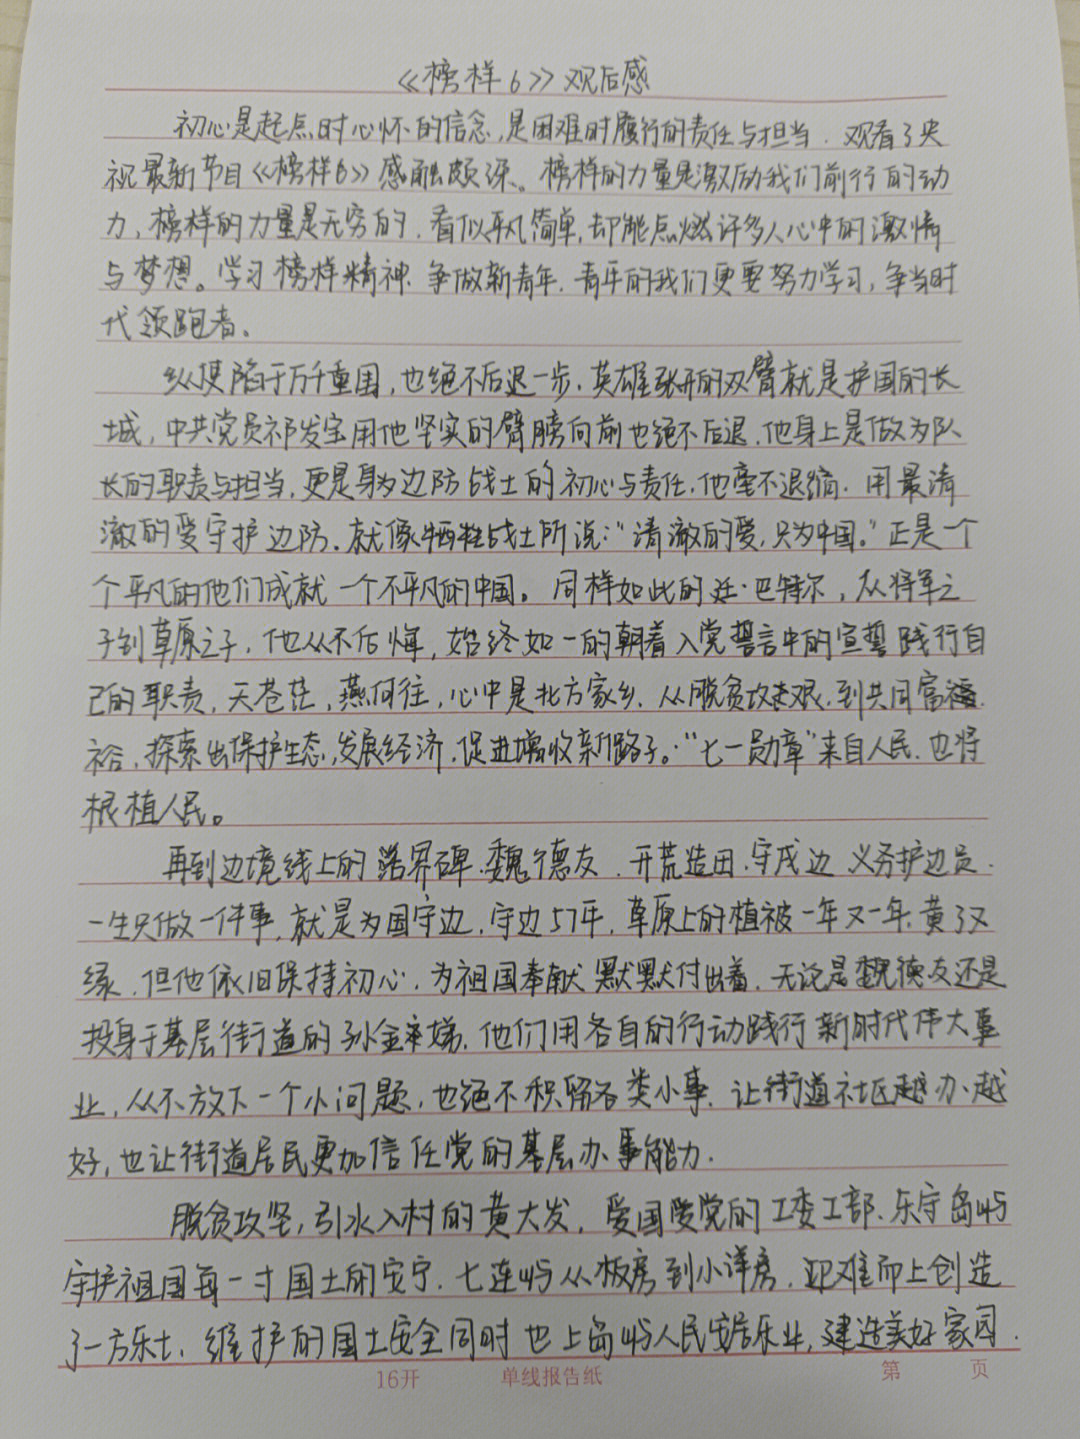 《榜样6》观后感
初心是起点时心怀的信念,是困难时履行的责任与担当.观看了央
视最新节目《榜样6》感触颇深。榜样的力量是激励我们前行的动
力,榜样的力量是无穷的.看似平凡简单,却能点燃许多人心中的激情
与梦想。学习榜样精神.争做新青年.青年的我们更要努力学习,争当时
代领跑者、
纵使陷于万千重围,也绝不后退一步.英雄张开的双臂就是护国的长
城,中共党员祁发宝用他坚实的臂膀向前也绝不后退.他身上是做为队
长的职责与担当,更是身为边防战士的初心与责任.他毫不退缩.用最清
澈的爱守护边防.就像牺牲战士所说:“清澈的爱,只为中国。”正是一个
个平凡的他们成就一个不平凡的中国。同样如此的廷·巴特尔,从将军之
子到草原之子,他从不后悔,始终如一的朝着入党誓言中的宣誓践行自
己的职责,天苍茫,燕何往,心中是北方家乡.从脱贫攻艰.到共同富
裕,探索出保护生态,发展经济.促进增收新路子。“七一勋章”来自人民.也将
根植人民。
再到边境线上的活界碑.魏德友.开荒造田.守戍边 义务护边员.
一生只做一件事,就是为国守边,守边57年,草原上的植被一年又一年.黄了又
绿.但他依旧保持初心.为祖国奉献 默默付出着.无论是魏德友还是
投身于基层街道的孙金娣.他们用各自的行动践行新时代伟大事
业,从不放下一个小问题,也绝不积留各类小事.让街道社区越办越
好,也让街道居民更加信任党的基层办事能力.
脱贫攻坚,引水入村的黄大发.爱国爱党的工委工部.乐守岛屿
守护祖国每一寸国土的安宁.七连屿从板房到小洋房.迎难而上创造
了一方乐土.维护的国土安全同时也上岛屿人民安居乐业,建造美好家园.
16开 单线报告纸 第 页